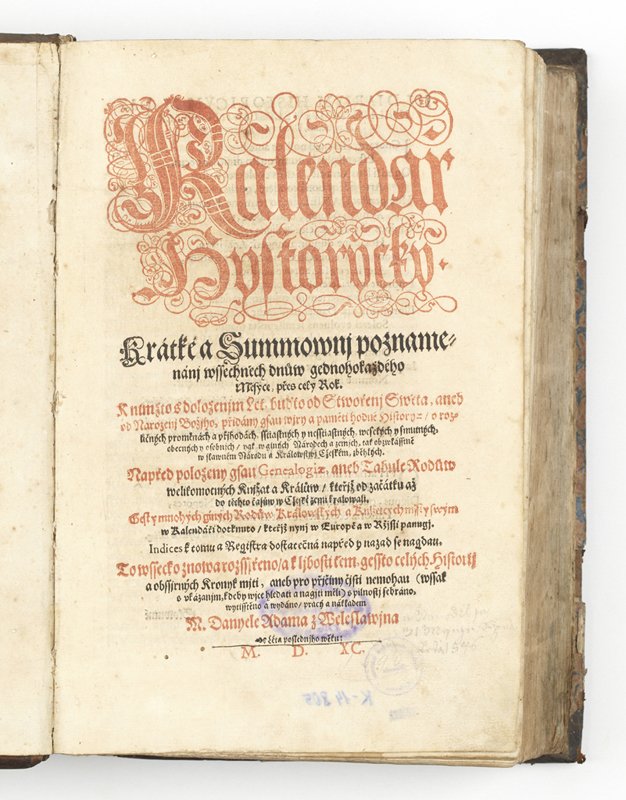 Kalendar
Hystorycký.
Krátké a Summownj pozname-
nánj wssěchněch dnůw gednohokaždého
Měsýce, přes celý Rok.
K nimžto s doloženjm Let, buďto od Stwořenj Swěta, aneb
od Narozenj Božjho, přidány gsau wjry a paměti hodné Historyæ / o roz-
ličných proměnách a přjhodách, sstiastných y nesstiastných, weselých y smutných,
obecnych y osobnjch / yak w giných Národech a zemjch, tak obzwlásstně
w slawném Národu a Králowstwj Cžeském, zběhlých.
Napřed položeny gsau Genealogiæ, aneb Tabule Rodůw
welikomocných Knjžat a Králůw / kteřjž od začátku až
do těchto časůw w Cžeské zemi kralowali.
Gest y mnohých giných Rodůw Králowských a Knjžetcých mjsty swým
w Kalendáři dotknuto / kteřjž nynj w Europě a w Ržjssi panugj.
Indices k tomu a Registra dostatečná napřed y nazad se nagdau.
To wssecko znowa rozssjřeno / a k ljbosti těm, gessto celých Historij
a obssjrných Kronyk mjti, aneb pro přjčiny čjsti nemohau (wssak
s vkázanjm, kdeby wjce hledati a nagjti měli) s pilnostj sebráno,
wytisstěno a wydáno / pracý a nákladem
M. Danyele Adama z Weleslawjna
Od Léta poslednjho wěku:
M. D. XC.
K-14 805